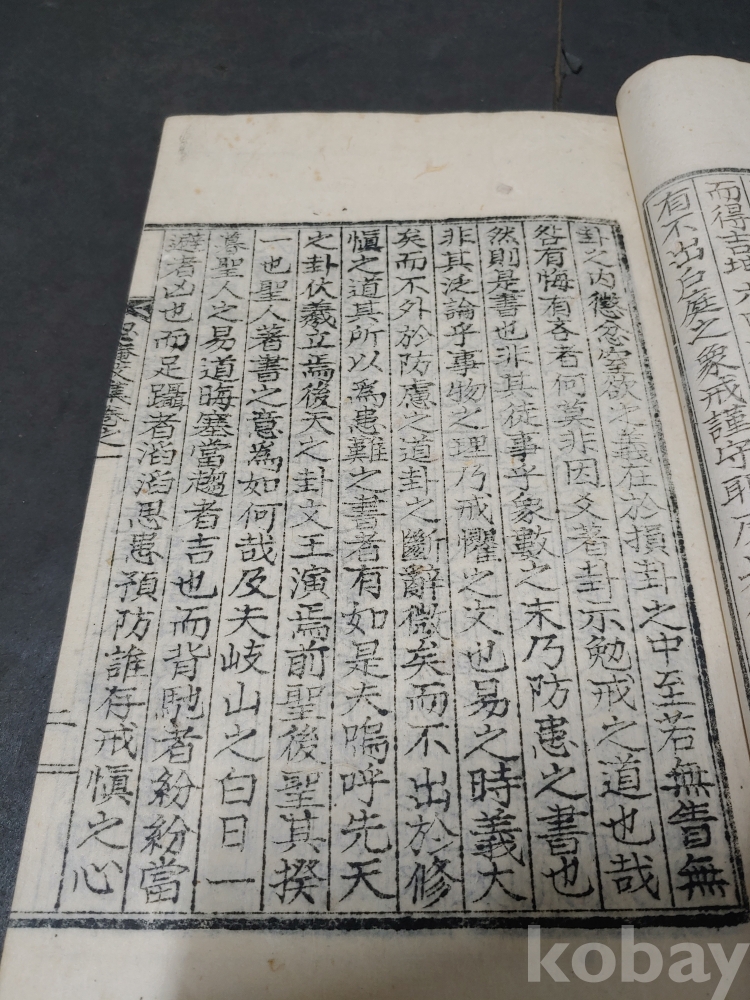 而得吉
有不出戶庭之象戒謹守
卦之內懲忿窒欲之義在於損卦之中至若無眚無
咎有悔有吝者何莫非因爻著卦示勉戒之道也哉
然則是書也非其徒事乎象數之末乃防患之書也
非其泛論乎事物之理乃戒懼之文也易之時義大
矣而不外於防慮之道卦之斷辭微矣而不出於修
愼之道其所以爲患難之書者有如是夫嗚呼先天
之卦伏羲立焉後天之卦文王演焉前聖後聖其揆
一也聖人著書之意爲如何哉及夫岐山之白日一
聖人之易道晦塞當趨者吉也而背馳者紛紛當
避者凶也而足躡者滔滔思患預防誰存戒愼之心
二
kobay